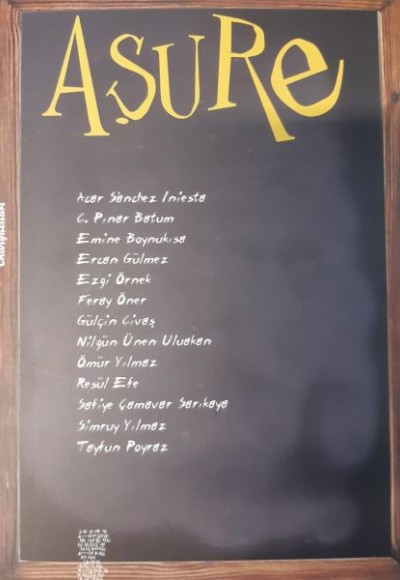 AŞURE
Acar Sànchez Iniesta
C. Pınar Batum
Emine Boynukısa
Ercan Gülmez
Ezgi Örnek
Feray Öner
Gülçin Civaş
Nilgün Ünen Uluakan
Ömür Yılmaz
Resül Efe
Safiye Çamavar Sarıkaya
Simruy Yılmaz
Tayfun Poyraz